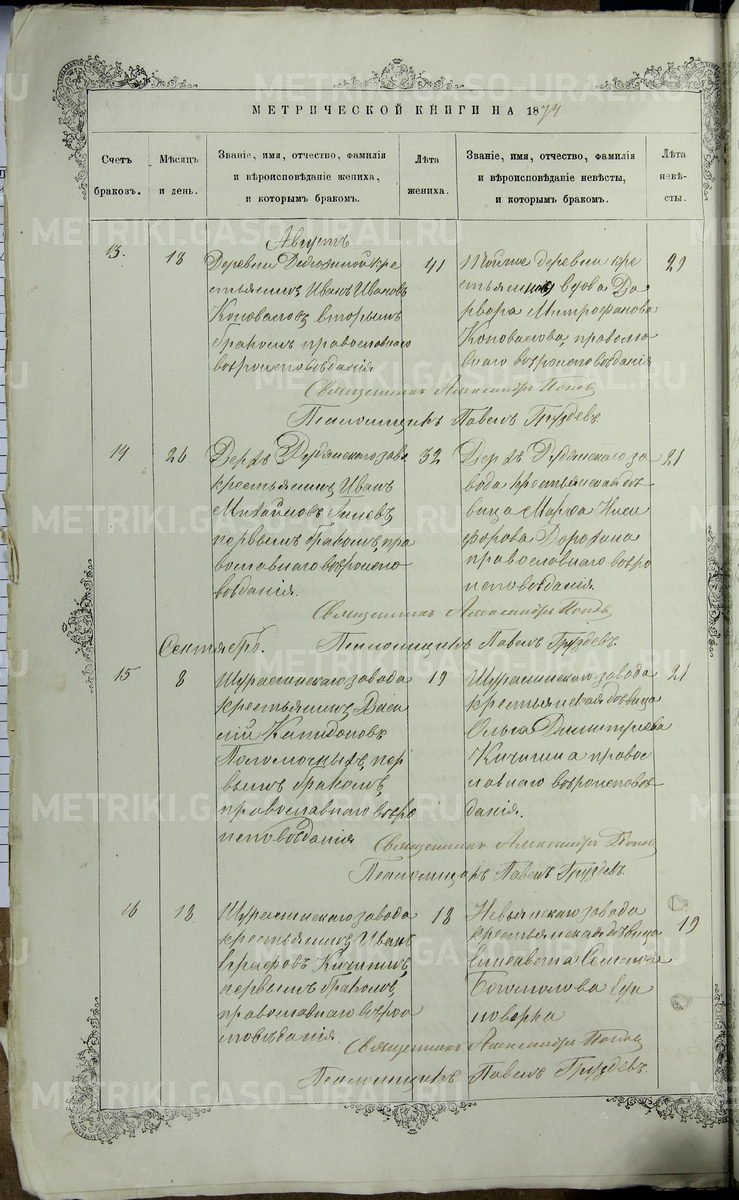 МЕТРИЧЕСКОЙ КНИГИ НА 1874
Счетъ
браковъ.
Мѣсяцъ
и день.
Званіе, имя, отчество, фамилія
и вѣроисповѣданіе жениха,
и которымъ бракомъ.
Лѣта
жениха.
Званіе, имя, отчество, фамилія
и вѣроисповѣданіе невѣсты,
и которымъ бракомъ.
Лѣта
невѣ-
сты.
Августъ
13.
18
Деревни кре
стьянинъ Иванъ Ивановъ
Коноваловъ вторымъ
бракомъ православнаго
вѣроисповѣданія
41
Тойже деревни кре
стьянская вдова Да
рья Митрофанова
Коновалова, правосла
внаго вѣроисповѣданія
29
Священникъ Александръ Поповъ
Псаломщикъ Павелъ Груздевъ.
14
26
завода
крестьянинъ Иванъ
Михайловъ
первымъ бракомъ, пра
вославнаго вѣроиспо
вѣданія.
32
за
вода крестьянская дѣ
вица Марѳа Ники
форова
православнаго вѣро
исповѣданія.
21
Священникъ Александръ Поповъ
Псаломщикъ Павелъ Груздевъ.
Сентябрь.
15
8
Шуралинскаго завода
крестьянинъ Васи
лій
пер
вымъ бракомъ,
православнаго вѣро
исповѣданія
19
Шуралинскаго завода
крестьянская дѣвица
Ольга Димитріева
Кичигина правос
лавнаго вѣроисповѣ
данія.
21
Священникъ Александръ Поповъ
Псаломщикъ Павелъ Груздевъ.
16
18
Шуралинскаго завода
крестьянинъ Иванъ
Кичигинъ,
первымъ бракомъ,
православнаго вѣрои
сповѣданія.
18
Невьянскаго завода
крестьянская дѣвица
Елисавета Семенова
Богомолова Еди
новерка
19
Священникъ Александръ Поповъ
Псаломщикъ Павелъ Груздевъ.
METRIKI.GASO-URAL.RU